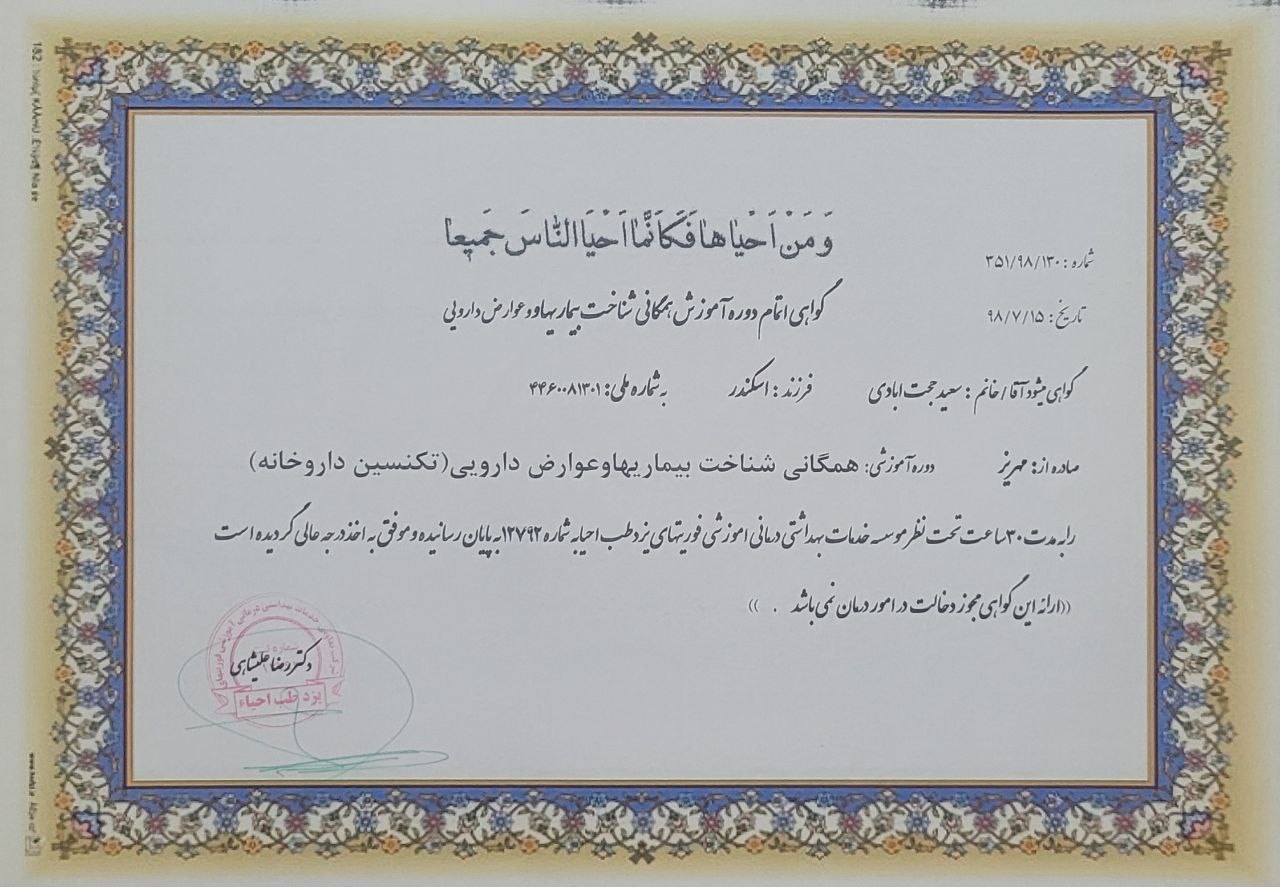 وَ مَنْ اَحْیاها فَکَاَنَّما اَحْیَا النّاسَ جَمیعا
شماره : ۳۵۱/۹۸/۱۳۰
گواهی اتمام دوره آموزش همگانی شناخت بیماریهاوعوارض دارویی
تاریخ : ۹۸/۷/۱۵
گواهی میشود آقا / خانم : سعید حجت ابادی فرزند : اسکندر به شماره ملی : ۴۴۶۰۰۸۱۳۰۱
صادره از: مهریز دوره آموزشی: همگانی شناخت بیماریهاوعوارض دارویی(تکنسین داروخانه)
رابه مدت ۳۰ساعت تحت نظر موسسه خدمات بهداشتی درمانی اموزشی فوریتهای یزد طب احیا به شماره ۱۲۷۹۲به پایان رسانیده و موفق به اخذ درجه عالی گردیده است
((ارائه این گواهی مجوز دخالت در امور درمان نمی باشد . ))
دکتر رضا علیشاهی
یزد طب احیاء